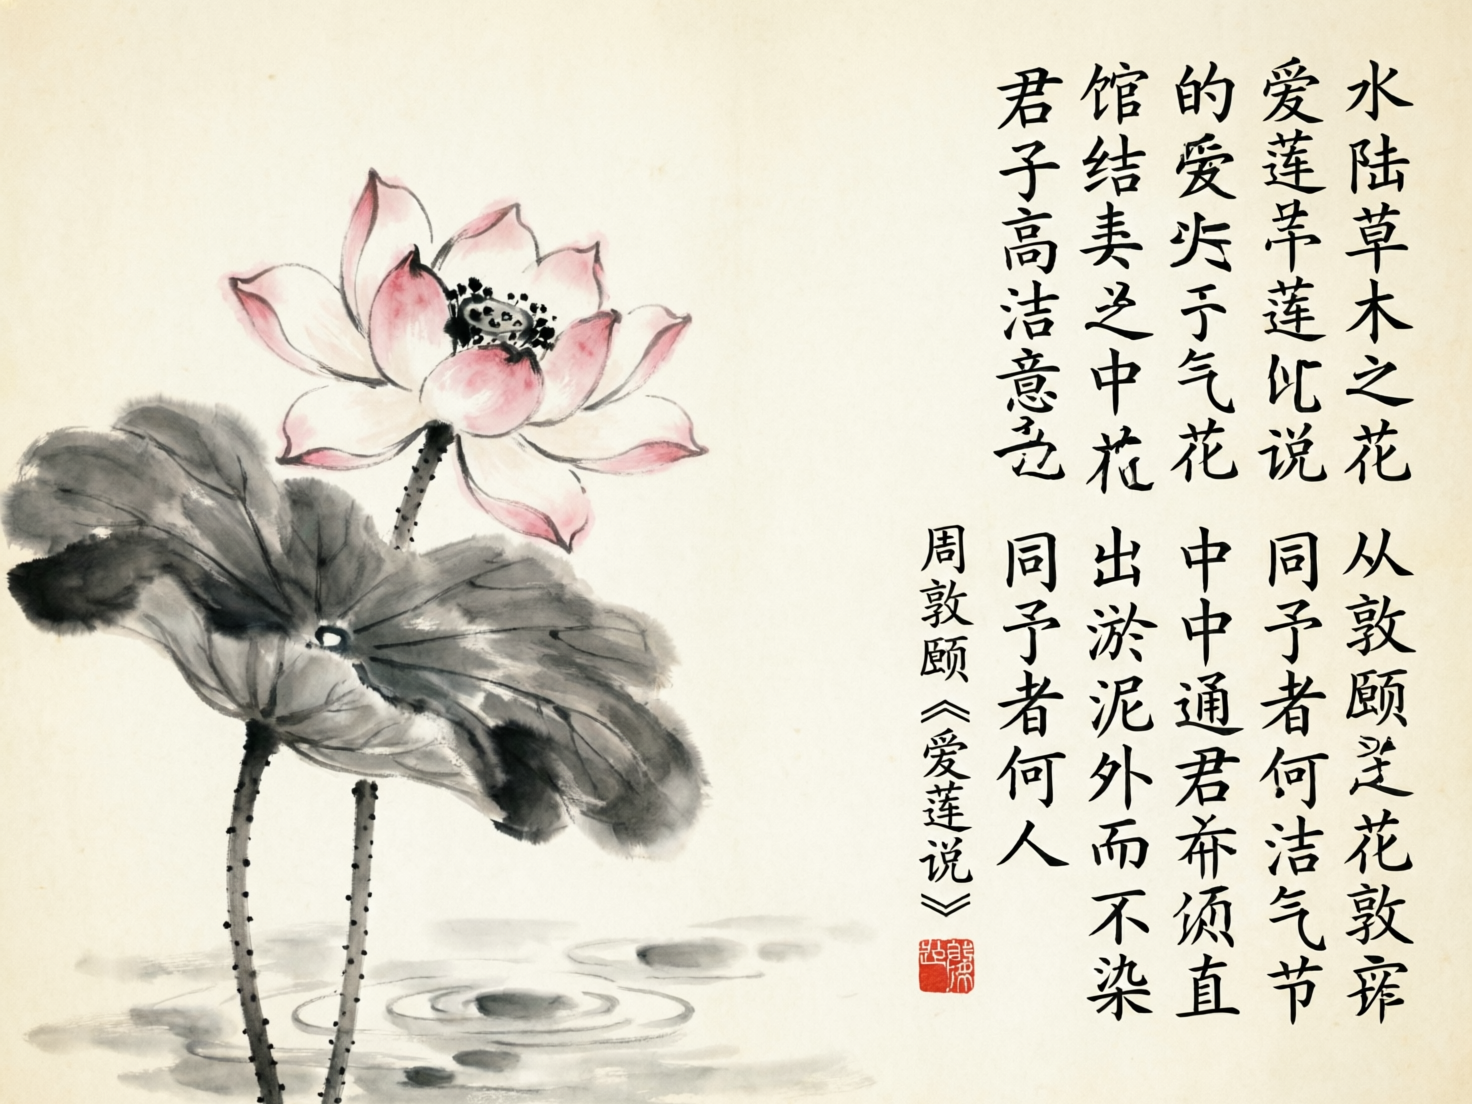 水陆草木之花
从敦颐花敦
爱莲莲说
同予者何洁气节
的爱于气花
中中通君须直
馆结之中花
出淤泥外而不染
君子高洁意
同予者何人
周敦颐《爱莲说》